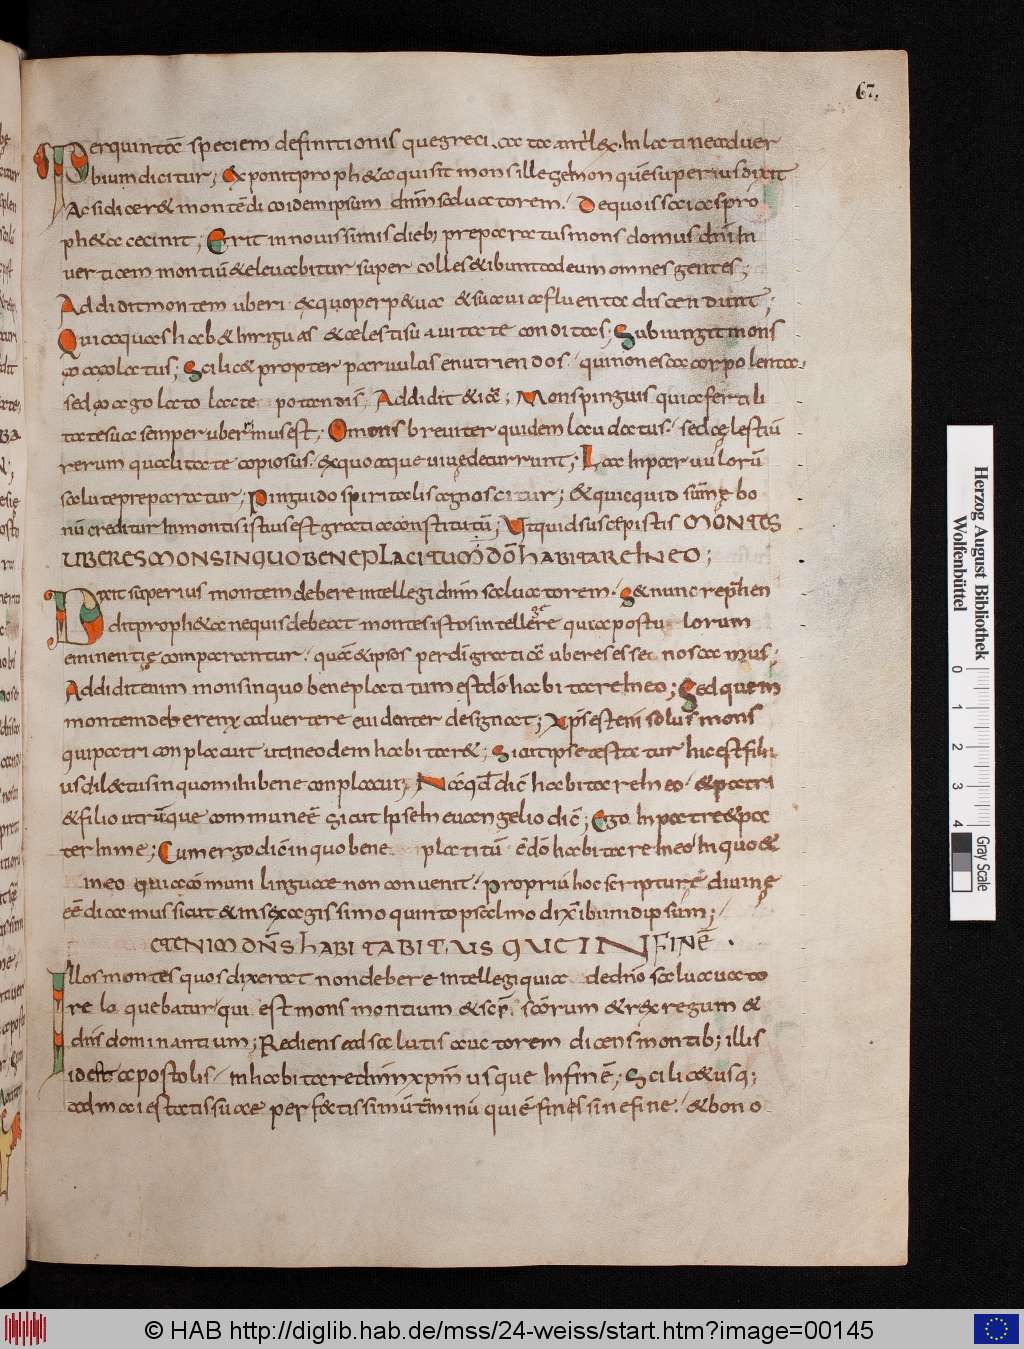 67.
Per quintā speciem definitionis que greci cata antiles. In latine adver
bium dicitur; Exponit propheta qui sit mons ille gemon quē superius dixit
Ac si diceret montē di idem ipsum dnm salvatorem. De quo isaias pro
pheta cecinit; Erit in novissimis dieb; preparatus mons domus dni In
verticem montiū & elevabitur super colles & ibunt ad eum omnes gentes;
Addidit montem uberi ex quo perpetua & suavia fluenta discendunt;
Quia quos habet Inriguas & caelesti suavitate conditas; Subiungit mons
coacolatus; Scilicet propter parvulos enutriendos. qui non esca corpolenta.
sed coagolato lacte potandis, Addidit & icē; Mons pinguis quia fertili
tate sua semper uberrimus est; O mons breviter quidem laudatus. sed cęlestiū
rerum qualitate copiosus. ex quo aque vivę decurrunt; Lac In parvulorū
salute preparatur; Pinguido spiritalis agnoscitur; & quicquid summe bo
nū creditur In montis istius est gratia constitutū; Ut quid suscepistis MONTES
UBERES MONS IN QUO BENE PLACITUM DŌ HABITARE IN EO;
Dixit superius montem debere intellegi dnm salvatorem. Et nunc rephen
dit propheta ne quis debeat montes istos intellere quia postulorum
eminentię comparantur. quā & ipsos per dī gratiā uberes esse noscamus.
Addidit enim mons in quo bene placitum est dō habitare In eo; Sed quem
montem deberemus advertere evidenter designat; Xps est eni solus mons
qui patri conplacuit ut in eodem habitaret; Sicut ipse testatur hic est fili
us dilectus in quo mihi bene conplacui; Nā qd dic habitare In eo. & patri
& filio utrūque commune ē Sicut Ipse In euangelio dic; Ego In patre & pa
ter In me; Cum ergo dic in quo bene placitū ē dō habitare In eo In quo &
in eo quia cōmuni linguae non convenit. Propriū hoc scripturę divinę
eē dicamus sicut & in sexagissimo quinto psalmo dixi ibi in id ipsum;
ETENIM DNS HABITABIT USQUE IN FINĒ.
Illos montes quos dixerat non debere intellegi quia de dno salvato
re loquebatur qui est mons montium & scs scorum & rex regum &
dns dominantium; Rediens ad salutis auctorem dicens montib; illis
id est apostolis Inhabitare dnm xpm usque In finē; Scilicet usq;
ad maiestatis suae perfectissimū tminū qui ē finis sine fine. & bono
Herzog August Bibliothek
Wolfenbüttel
0 1 2 3 4
Gray Scale
© HAB http://diglib.hab.de/mss/24-weiss/start.htm?image=00145